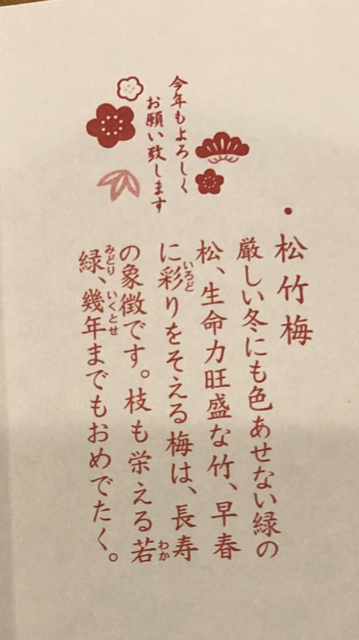 今年もよろしく
お願い致します
・松竹梅
厳しい冬にも色あせない緑の
松、生命力旺盛な竹、早春
に彩りをそえる梅は、長寿
の象徴です。枝も栄える若
緑、幾年までもおめでたく。
いろど
わか
みどり
いくとせ